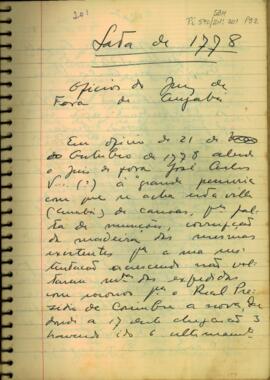 201
SBH
Pi 590/
201 P92
Data de 1778
Ofícios do Juiz de
Fora de Cuyabá
Em ofício de 21 de
Outubro de 1778 alude
o Juiz de fora José Carlos
V... (?) à grande penuria
com que se acha esta villa
(Cuiabá) de canoas, pª fal
ta de munições, corrupção
da madeira das mesmas
existentes pª a sua
não vol
taram expedidas
com socorros pª o Real Pre
sidio de Coimbra a nova, de
donde a 17 deste chegarão 3
havendo ido 6 ultimamte